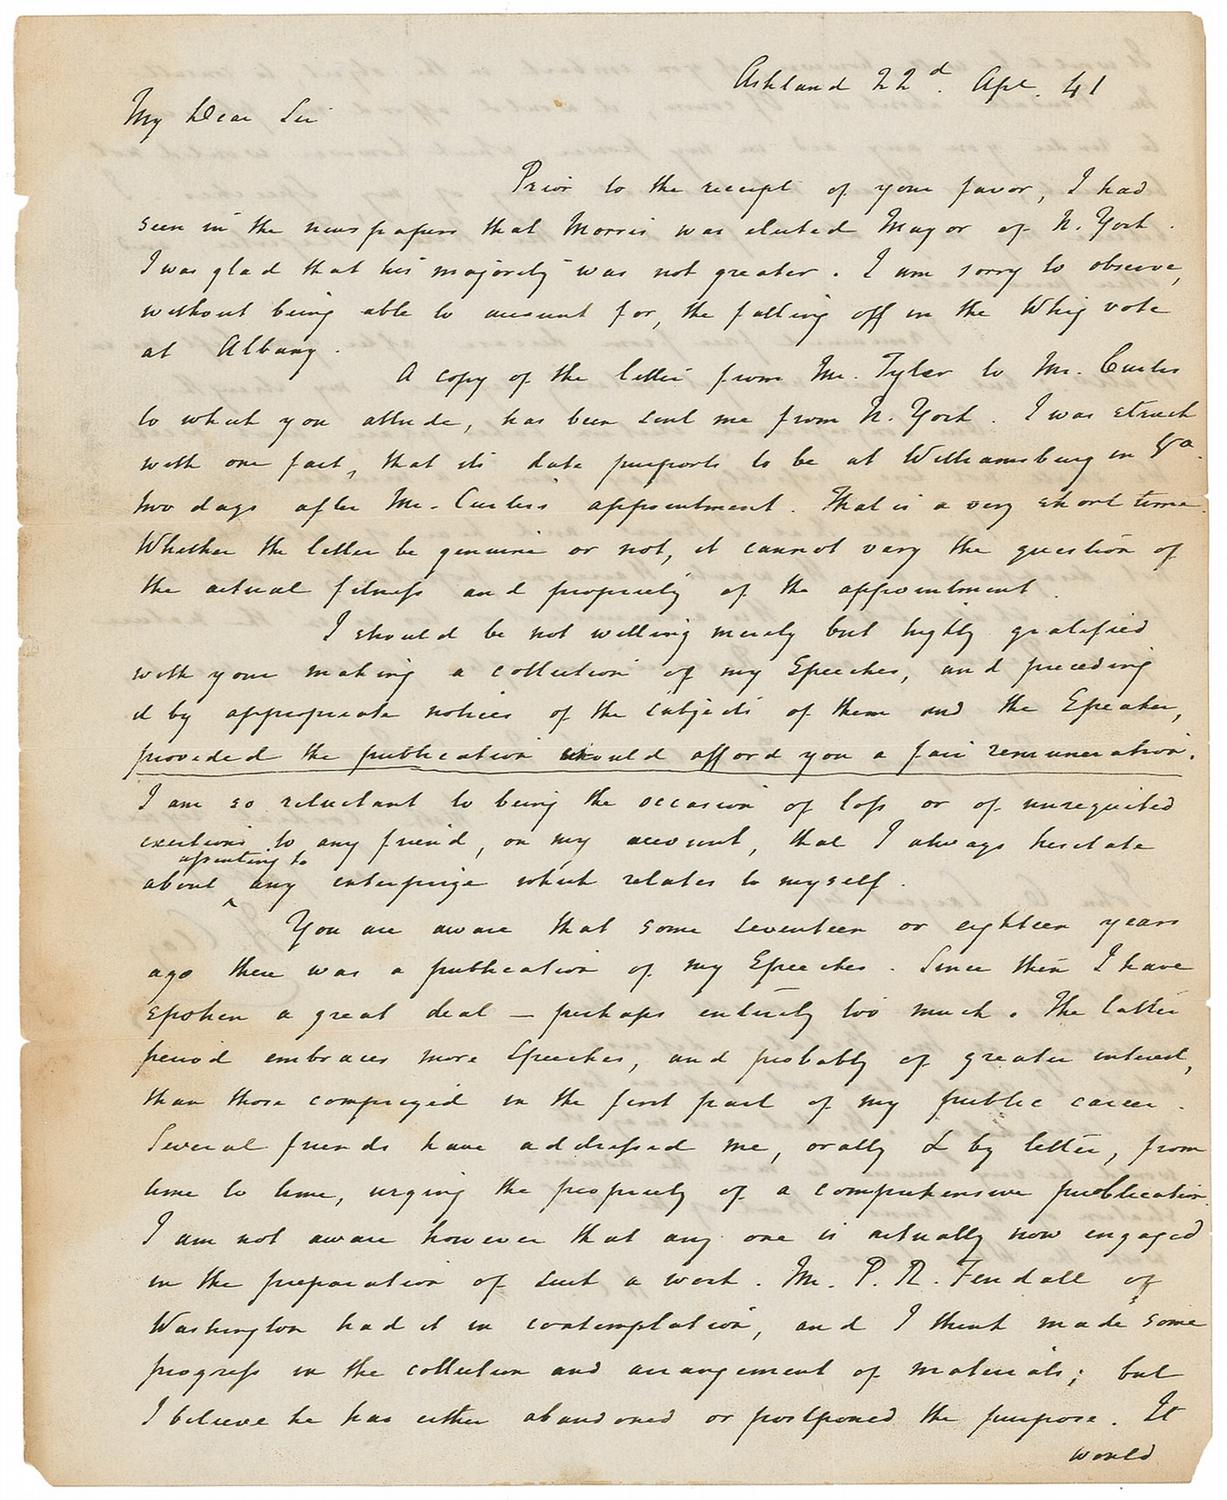 Ashland 22d. Apl. 41
My Dear Sir
Prior to the receipt of your favor, I had
seen in the newspapers that Morris was elected Mayor of N. York.
I was glad that his majority was not greater. I am sorry to observe,
without being able to account for, the falling off in the Whig vote
at Albany.
A copy of the letter from Mr. Tyler to Mr. Curtis
to which you allude, has been sent me from N. York. I was struck
with one fact, that its date purports to be at Williamsburg in Va.
two days after Mr. Curtis's appointment. That is a very short time.
Whether the letter be genuine or not, it cannot vary the question of
the actual fitness and propriety of the appointment.
I should be not willing merely but highly gratified
with your making a collection of my Speeches, and preceding
it by appropriate notices of the subjects of them and the Speaker,
provided the publication would afford you a fair remuneration.
I am so reluctant to being the occasion of loss or of unrequited
exertions to any friend, on my account, that I always hesitate
assenting to
about ^ any enterprize which relates to myself.
You are aware that some seventeen or eighteen years
ago there was a publication of my Speeches. Since then I have
spoken a great deal — perhaps entirely too much. The latter
period embraces more Speeches, and probably of greater interest,
than those comprized in the first part of my public career.
Several friends have addressed me, orally & by letter, from
time to time, urging the propriety of a comprehensive publication.
I am not aware however that any one is actually now engaged
in the preparation of such a work. Mr. P. R. Fendall of
Washington had it in contemplation, and I think made some
progress in the collection and arrangement of materials; but
I believe he has either abandoned or postponed the purpose. It
would